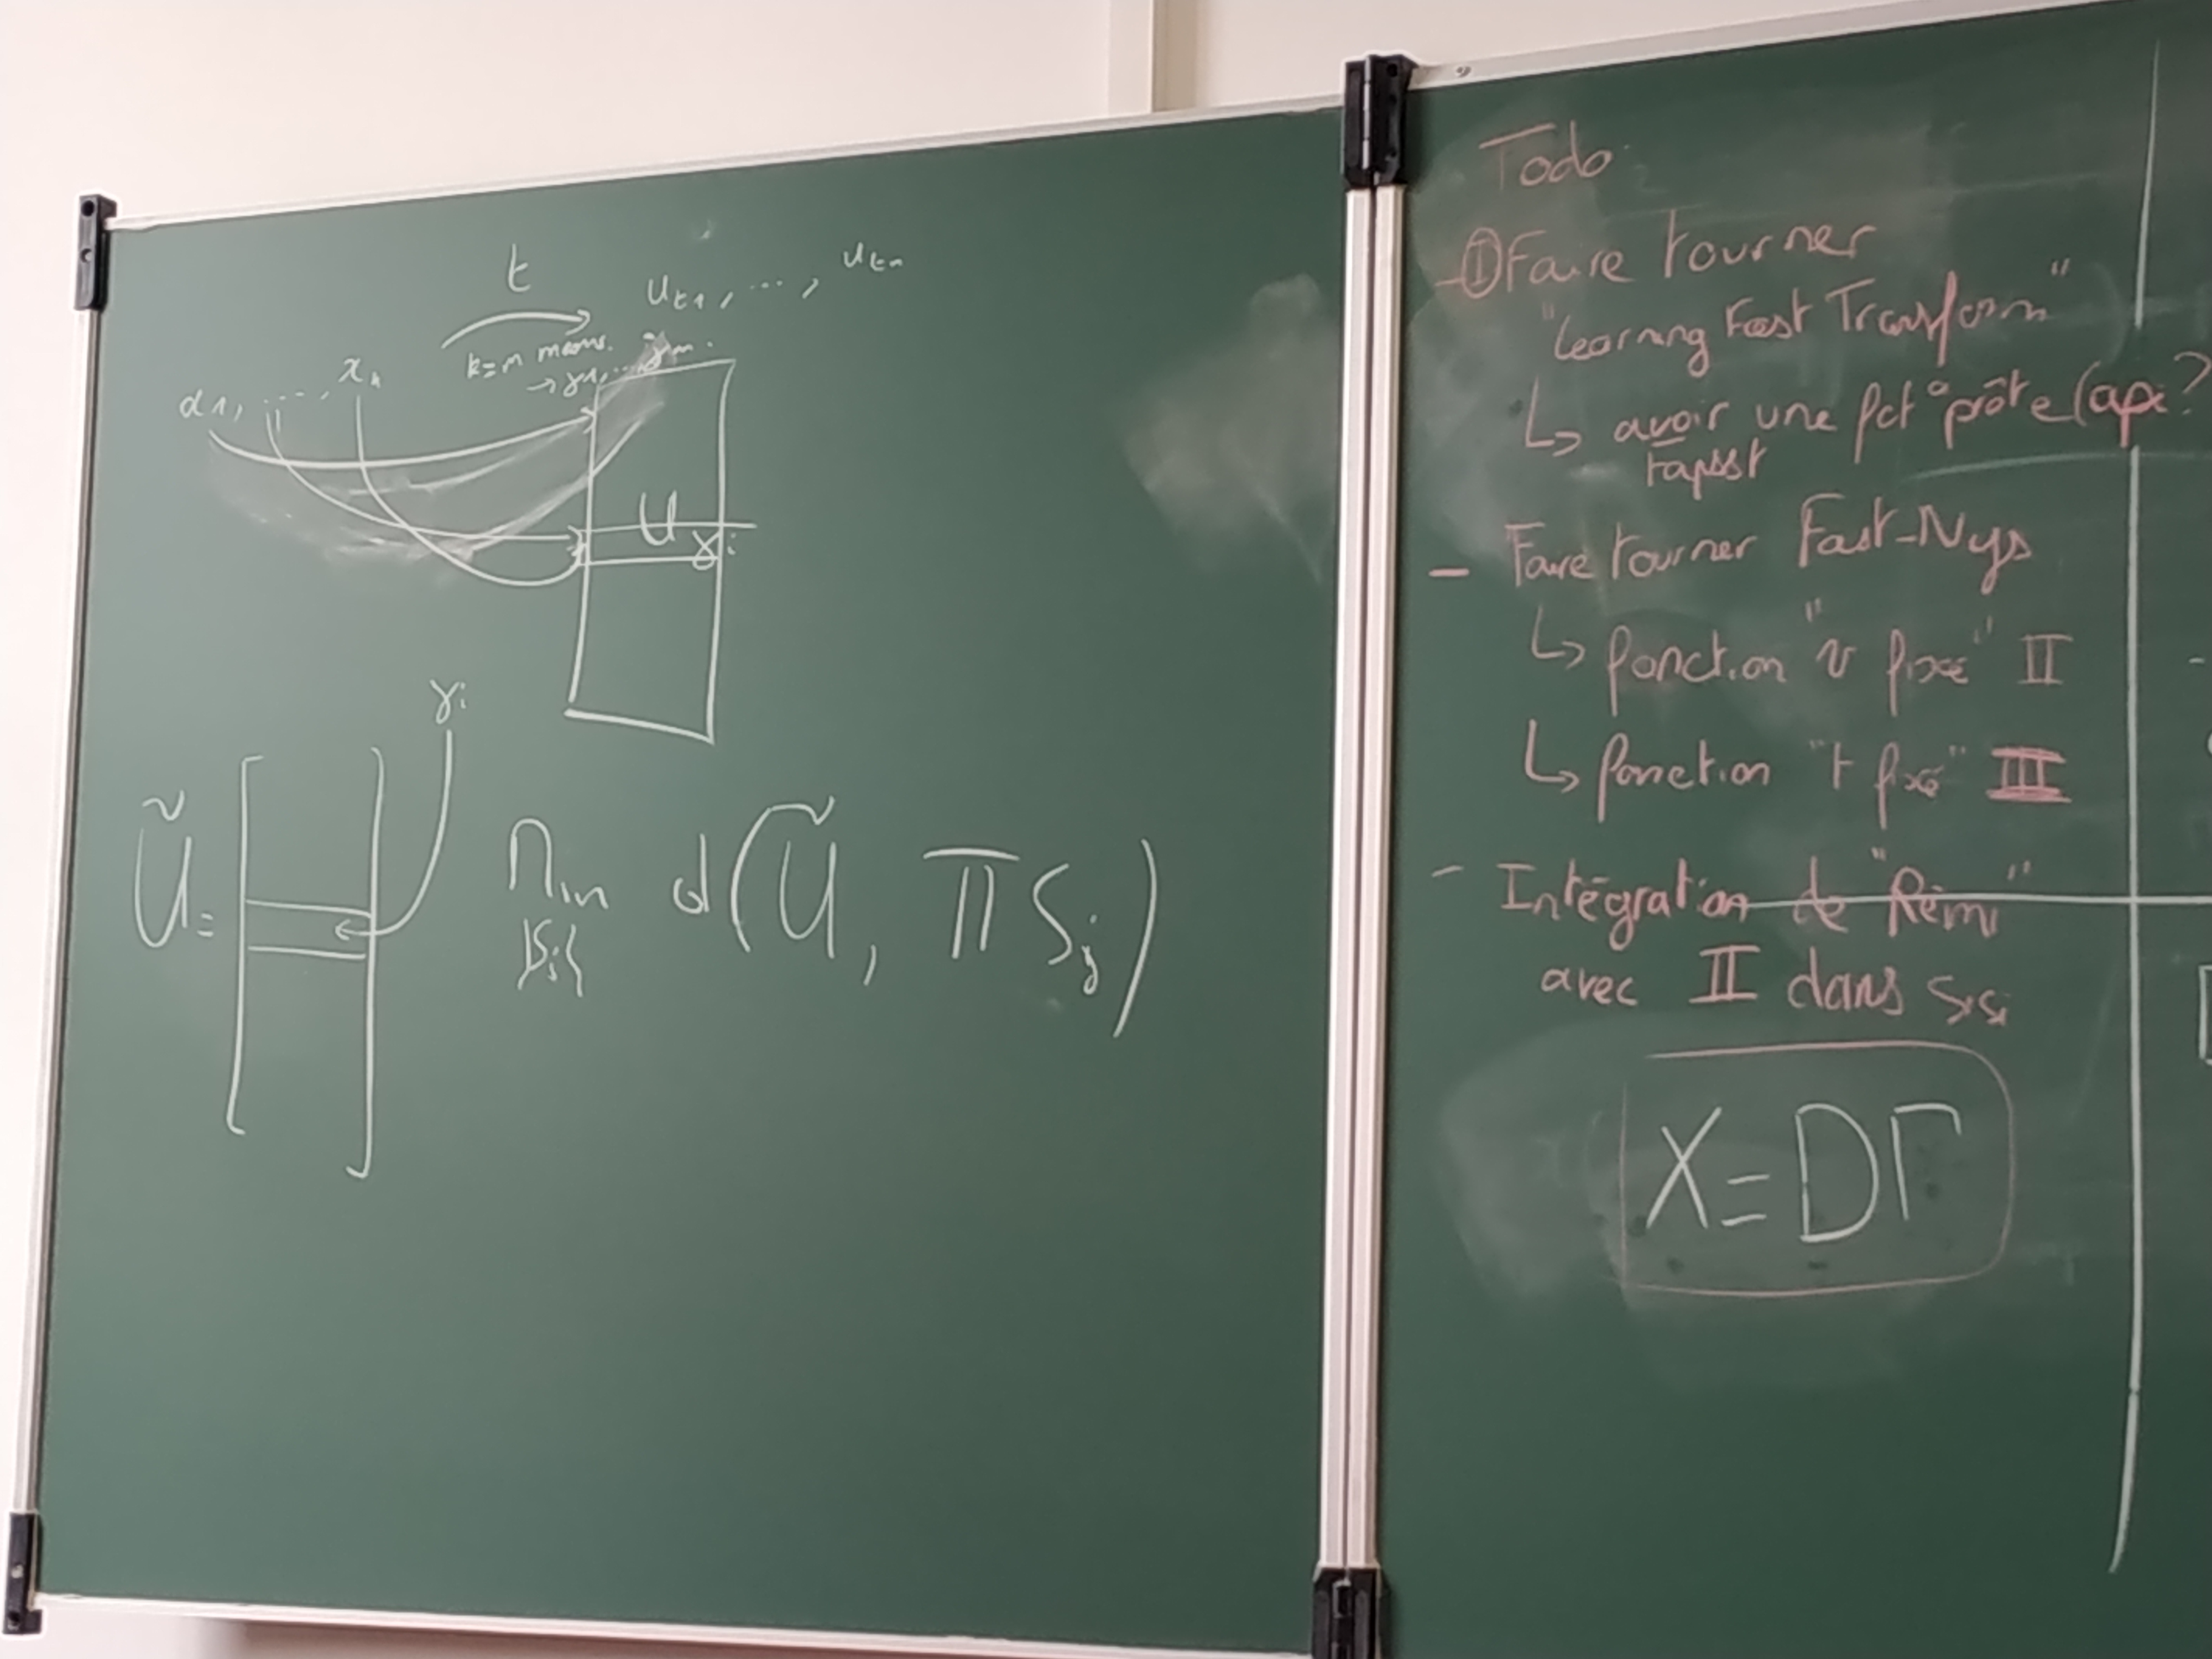 t
u_{t1}, ..., u_{tn}
k=n means.
→ γ1, ... γn.
α1, ..., x_n
U
γi
γi
Ũ =
Min d(Ũ, ΠS_j)
{S_i}
Todo
- ① Faire tourner
"Learning Fast Transform"
↳ avoir une fct° prête (api?
- Faire tourner Fast-Nys
↳ fonction "v fixé" II
↳ fonction "t fixé" III
- Intégration de "Rémi"
avec II dans
X = DΓ